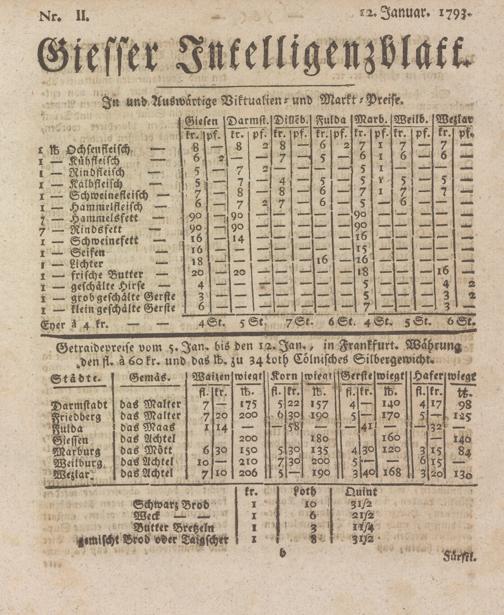 Nr. II. 12. Januar. 1793.
Giesser Intelligenzblatt.
In und Auswärtige Viktualien- und Markt-Preise.
Giesen Darmst. Dilleb. Fulda Marb. Weilb. Wezlar
kr. pf. kr. pf. kr. pf. kr. pf. kr. pf. kr. pf. kr. pf.
1 lb Ochsenfleisch — 8 — 8 2 8 — 6 2 7 1 7 — 7 —
1 — Kühfleisch
1 — Rindfleisch
1 — Kalbfleisch
1 — Schweinefleisch —
1 — Hammelfleisch
7 — Hammelsfett — 90 — 90 — — — — — 90 — — — — —
7 — Rindsfett — 90 — 90 — — — — — 90 — — — — —
1 — Schweinefett — 16 — 14 — — — — — 16 — — — — —
1 — Seifen — 16 — — — — — — — 15 — — — — —
1 — Lichter — 18 — — — — — 16 — 16 — — — — —
1 — frische Butter — 20 — 20 — — — — — 18 — — — 16 —
1 — geschälte Hirse — 4 — — — — — — — 5 — — — 4 2
1 — grob geschälte Gerste 3 — — — — — — — 5 — — — 3 2
1 — klein geschälte Gerste 6 — — — — — — — 7 — — — 3 —
Eyer à 4 kr. — — 4 St. 5 St. 7 St. 6 St. 4 St. 5 St. 6 St.
Getraidepreise vom 5. Jan. bis den 12. Jan., in Frankfurt. Währung
den fl. à 60 kr. und das lb. zu 34 Loth Cölnisches Silbergewicht.
Städte. Gemäs. Waizen wiegt Korn wiegt Gerste wiegt Hafer wiegt
fl. kr. lb. fl. kr. lb. fl. kr. lb. fl. kr. lb.
Darmstadt das Malter 7 — 175 5 22 157 4 5 140 4 17 98
Friedberg das Malter 7 20 200 6 30 190 5 — 170 5 — 125
Fulda das Maas 1 14 — — 58 — — 41 — — 32 —
Giessen das Achtel 200 180 160 — 140
Marburg das Mött 6 30 150 5 30 135 4 30 120 3 15 84
Weilburg das Achtel 10 — 210 7 30 200 5 — — 6 15 —
Wezlar das Achtel 7 10 206 5 — 190 3 40 168 3 20 130
kr. Loth Quint
Schwarz Brod 1 10 3 1/2
Weck — — 1 6 2 1/2
Butter Bretzeln 1 3 1 1/4
gemischt Brod oder Taigscher 1 8 3 1/2
b Fürstl.